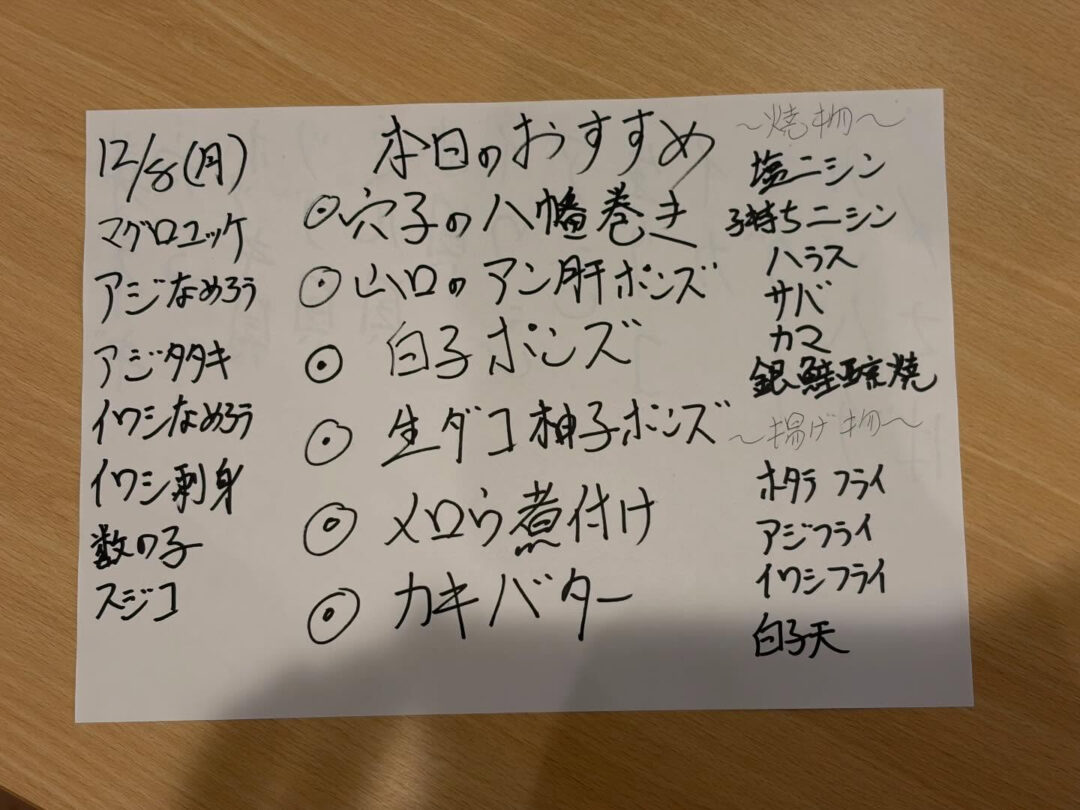 12/8(月)
マグロユッケ
アジなめろう
アジタタキ
イワシなめろう
イワシ刺身
数の子
スジコ
本日のおすすめ
◎穴子の八幡巻き
◎山口のアン肝ポンズ
◎白子ポンズ
◎生ダコ柚子ポンズ
◎メロウ煮付け
◎カキバター
〜焼物〜
塩ニシン
子持ちニシン
ハラス
サバ
カマ
銀鮭西京焼
〜揚げ物〜
ホタテフライ
アジフライ
イワシフライ
白子天